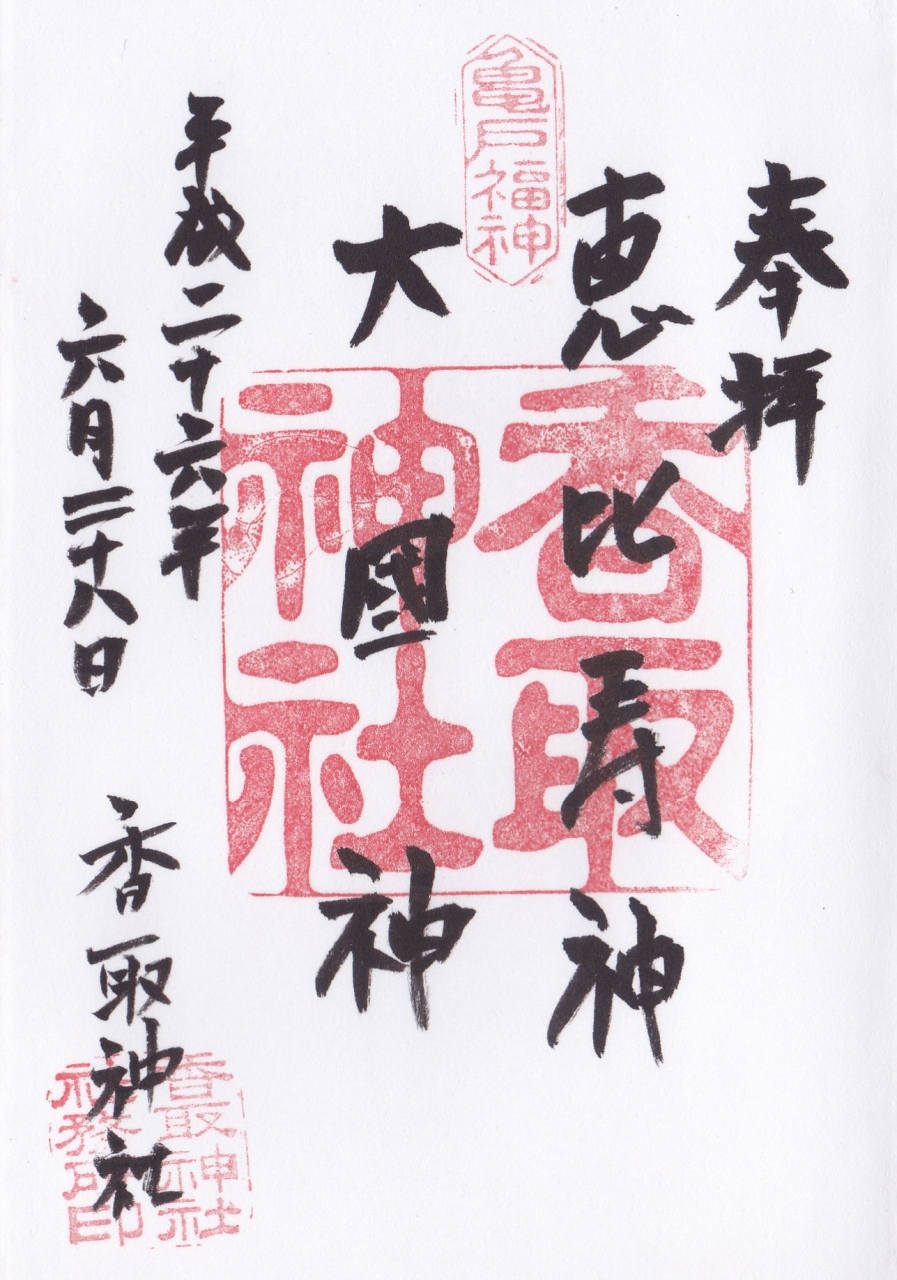 奉拝
恵比寿神
亀戸福神
大國神
香取
神社
平成二十六年
六月二十八日
香取神社
香取神社
社務所印